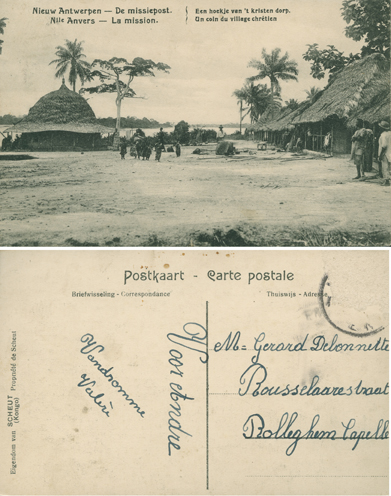 Nieuw Antwerpen — De missiepost.
Nlle Anvers — La mission.
Een hoekje van 't kristen dorp.
Un coin du village chrétien
Postkaart - Carte postale
Briefwisseling - Correspondance
Thuiswijs - Adresse
Eigendom van SCHEUT Propriété de Scheut
(Kongo)
Vandromme
Valère
Voor André
M= Gerard Delonnette
Rousselaarestraat
Rolleghem Capelle